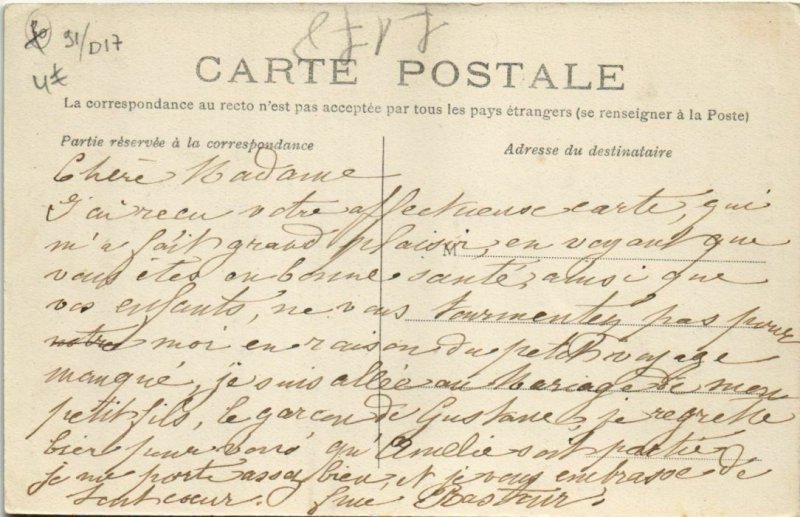 91/D17
4F
CARTE POSTALE
La correspondance au recto n'est pas acceptée par tous les pays étrangers (se renseigner à la Poste)
Partie réservée à la correspondance
Adresse du destinataire
M
Chère Madame
J'ai reçu votre affectueuse carte, qui
m'a fait grand plaisir, en voyant que
vous êtes en bonne santé, ainsi que
vos enfants, ne vous tourmentez pas pour
notre moi en raison du petit voyage
manqué, je suis allée au Mariage de mon
petit fils, le garçon de Gustave, je regrette
bien pour vous qu'Amélie soit partie,
je me porte assez bien, je vous embrasse de
tout coeur.